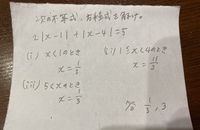 次の不等式、方程式を解け。
2|x-1|+|x-4|=5
(i) x<1のとき
x=1/3
(ii) 1≦x<4のとき
(iii) 5<xのとき
x=1/3
1/3, 3